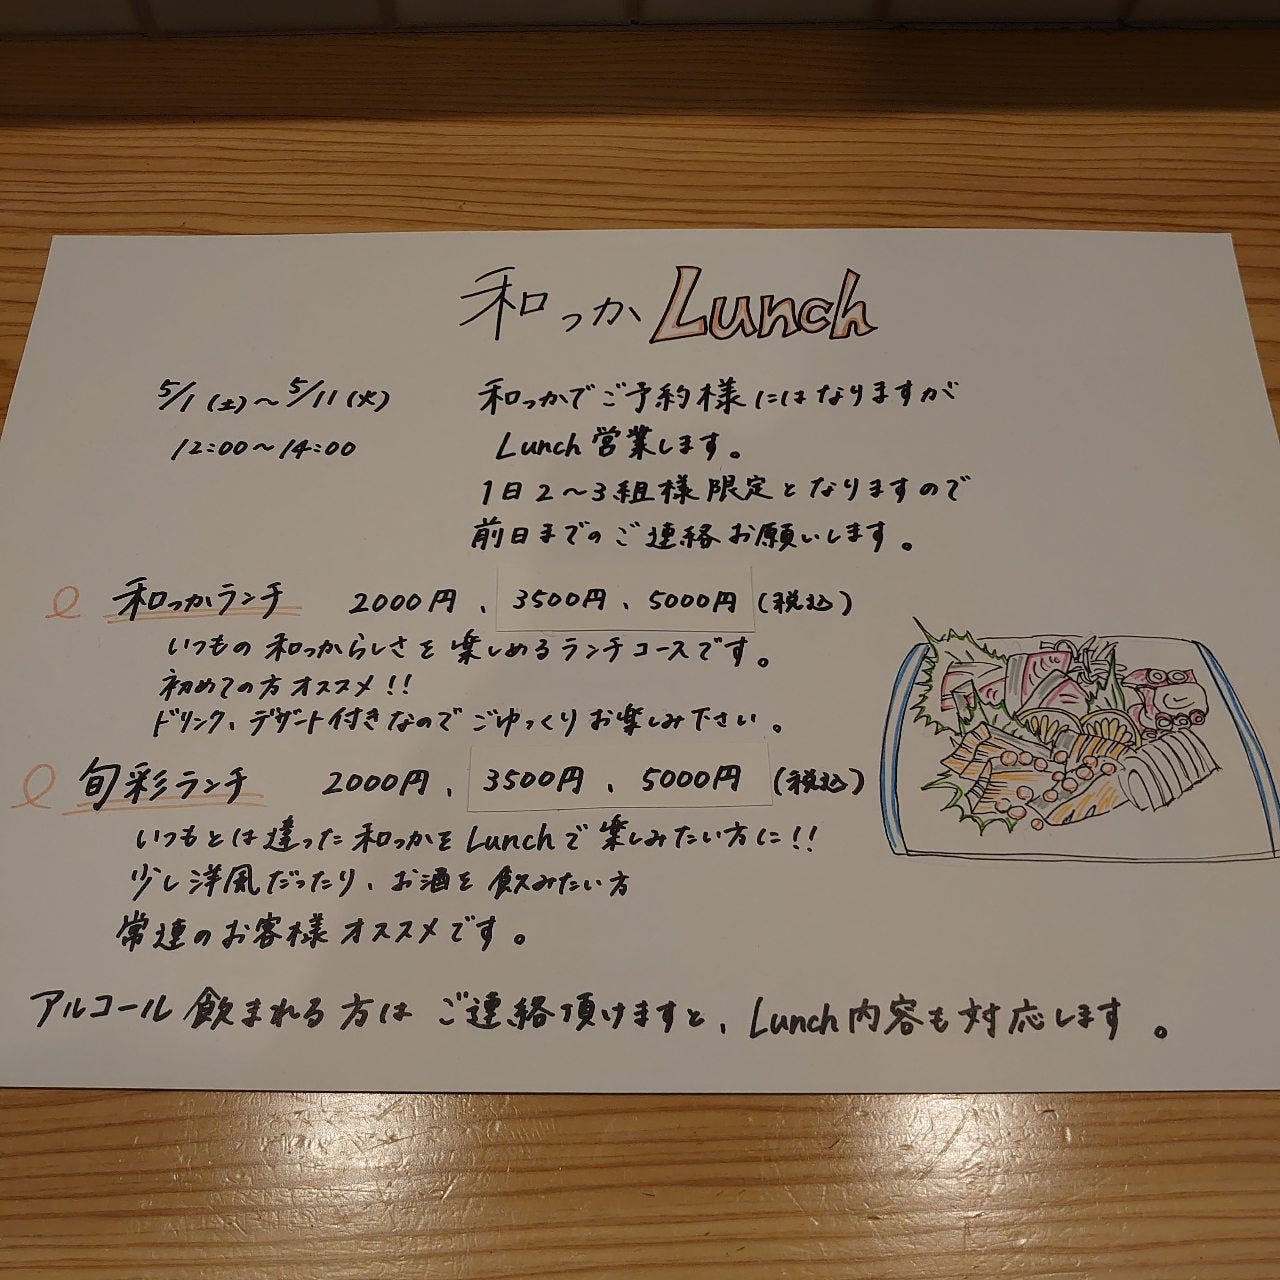 和っかLunch
5/1(土)～5/11(火)
12:00～14:00
和っかでご予約様にはなりますが
Lunch営業します。
1日2～3組様限定となりますので
前日までのご連絡お願いします。
和っかランチ 2000円、3500円、5000円(税込)
いつもの和っからしさを楽しめるランチコースです。
初めての方オススメ!!
ドリンク、デザート付きなのでごゆっくりお楽しみ下さい。
旬彩ランチ 2000円、3500円、5000円(税込)
いつもとは違った和っかをLunchで楽しみたい方に!!
少し洋風だったり、お酒を飲みたい方
常連のお客様オススメです。
アルコール飲まれる方はご連絡頂けますと、Lunch内容も対応します。